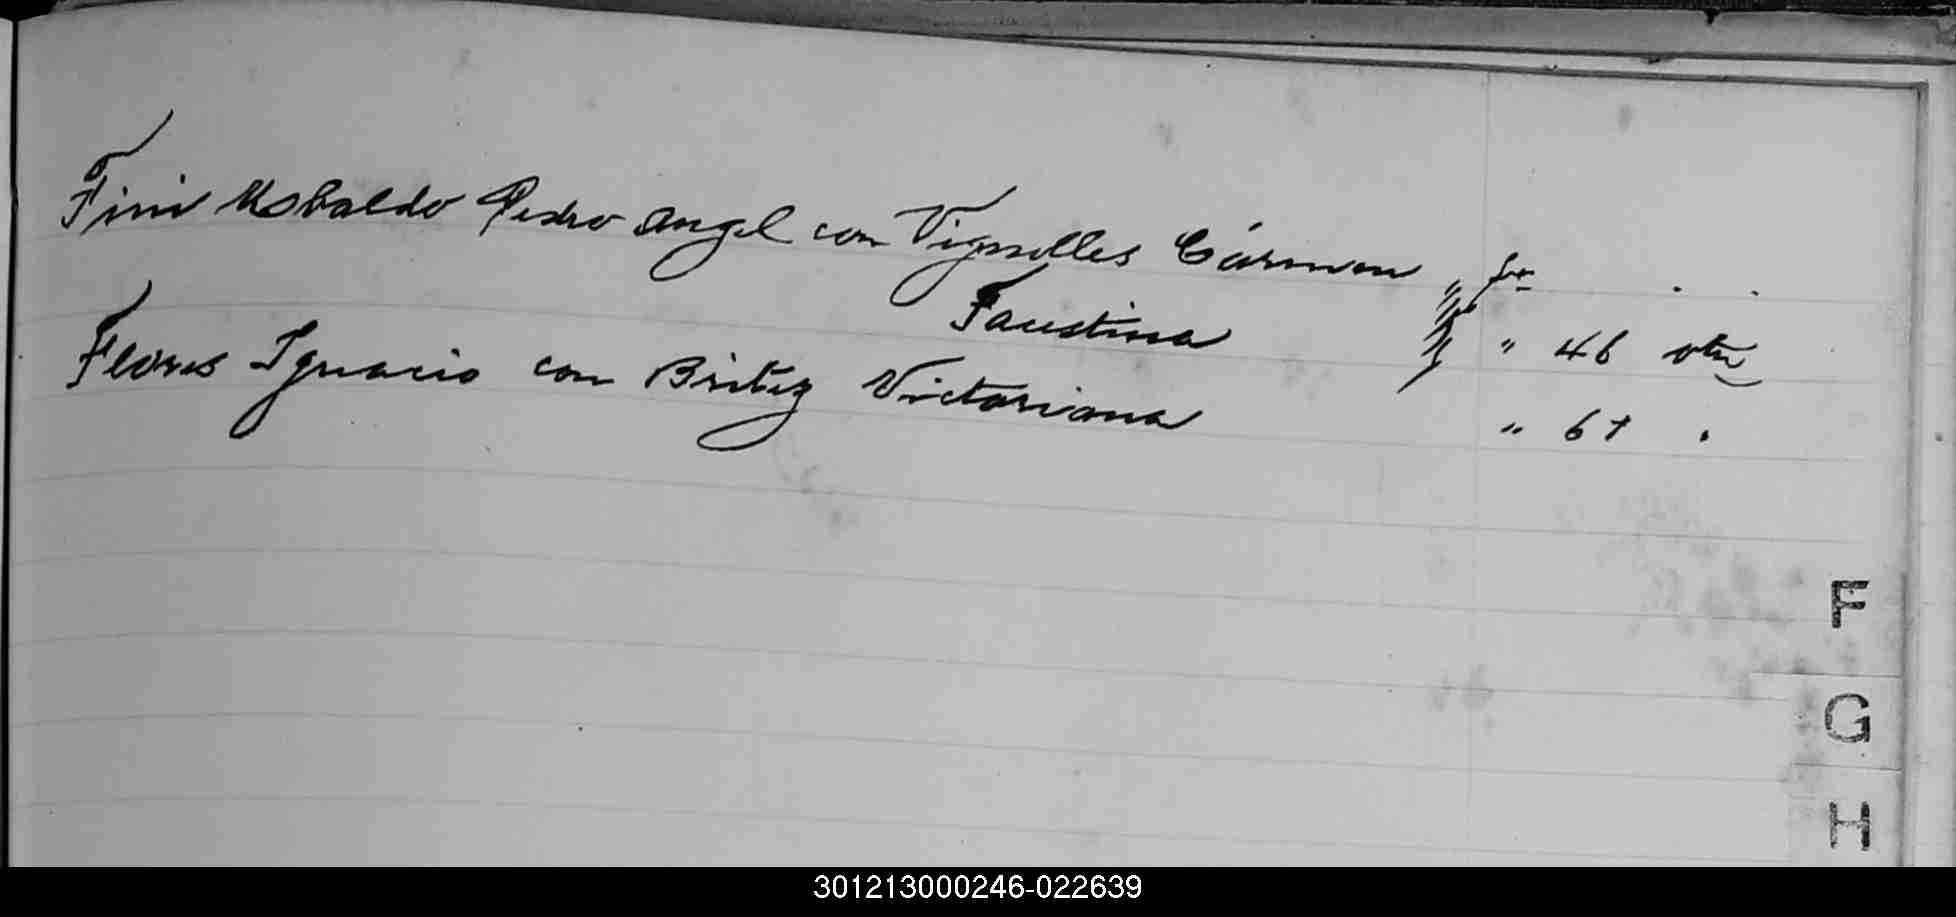 Fini Usbaldo Pedro Angel con Vignolles Cármen " fo
Faustina " 46 vta
Flores Ignacio con Britez Victoriana " 67 .
F
G
H
301213000246-022639